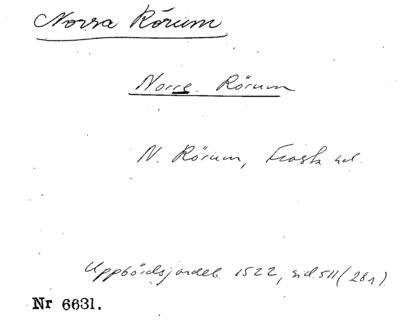 Norra Rörum
Norre Rörum
N. Rörum, Frosta hd.
Uppbördsjordeb. 1522, sid. 511 (28 r)
Nr 6631.